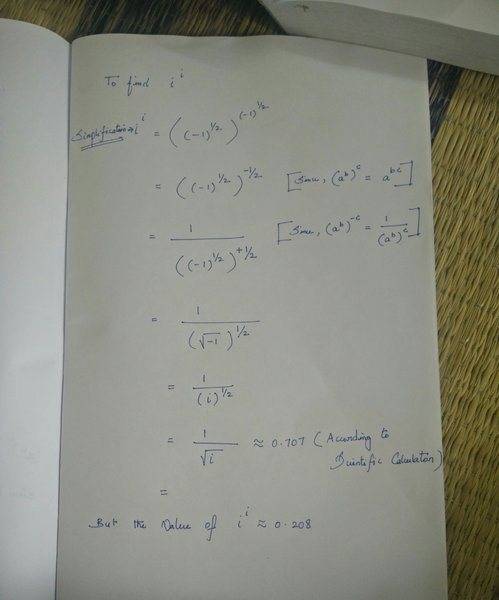 To find i^i
Simplification ⇒ i^i = ((-1)^{1/2})^{(-1)^{1/2}}
= ((-1)^{1/2})^{-1/2} [Since, (a^b)^c = a^{bc}]
= 1/((-1)^{1/2})^{+1/2} [Since, (a^b)^{-c} = 1/(a^b)^c]
= 1/(√-1)^{1/2}
= 1/(i)^{1/2}
= 1/√i ≈ 0.707 (According to
Scientific Calculator)
=
But the value of i^i ≈ 0.208